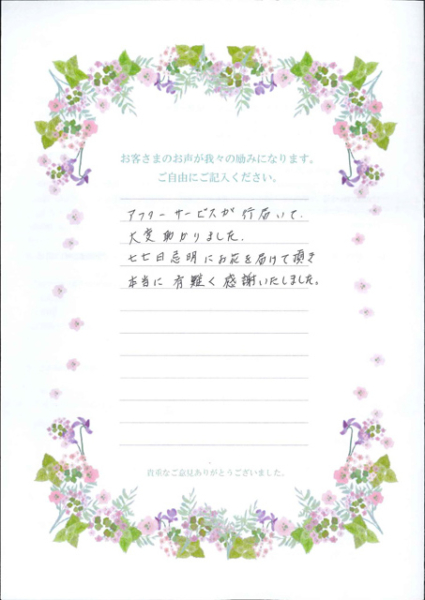 お客さまのお声が我々の励みになります。
ご自由にご記入ください。
アフターサービスが行届いて、
大変助かりました。
七七日忌明にお花を届けて頂き
本当に有難く感謝いたしました。
貴重なご意見ありがとうございました。